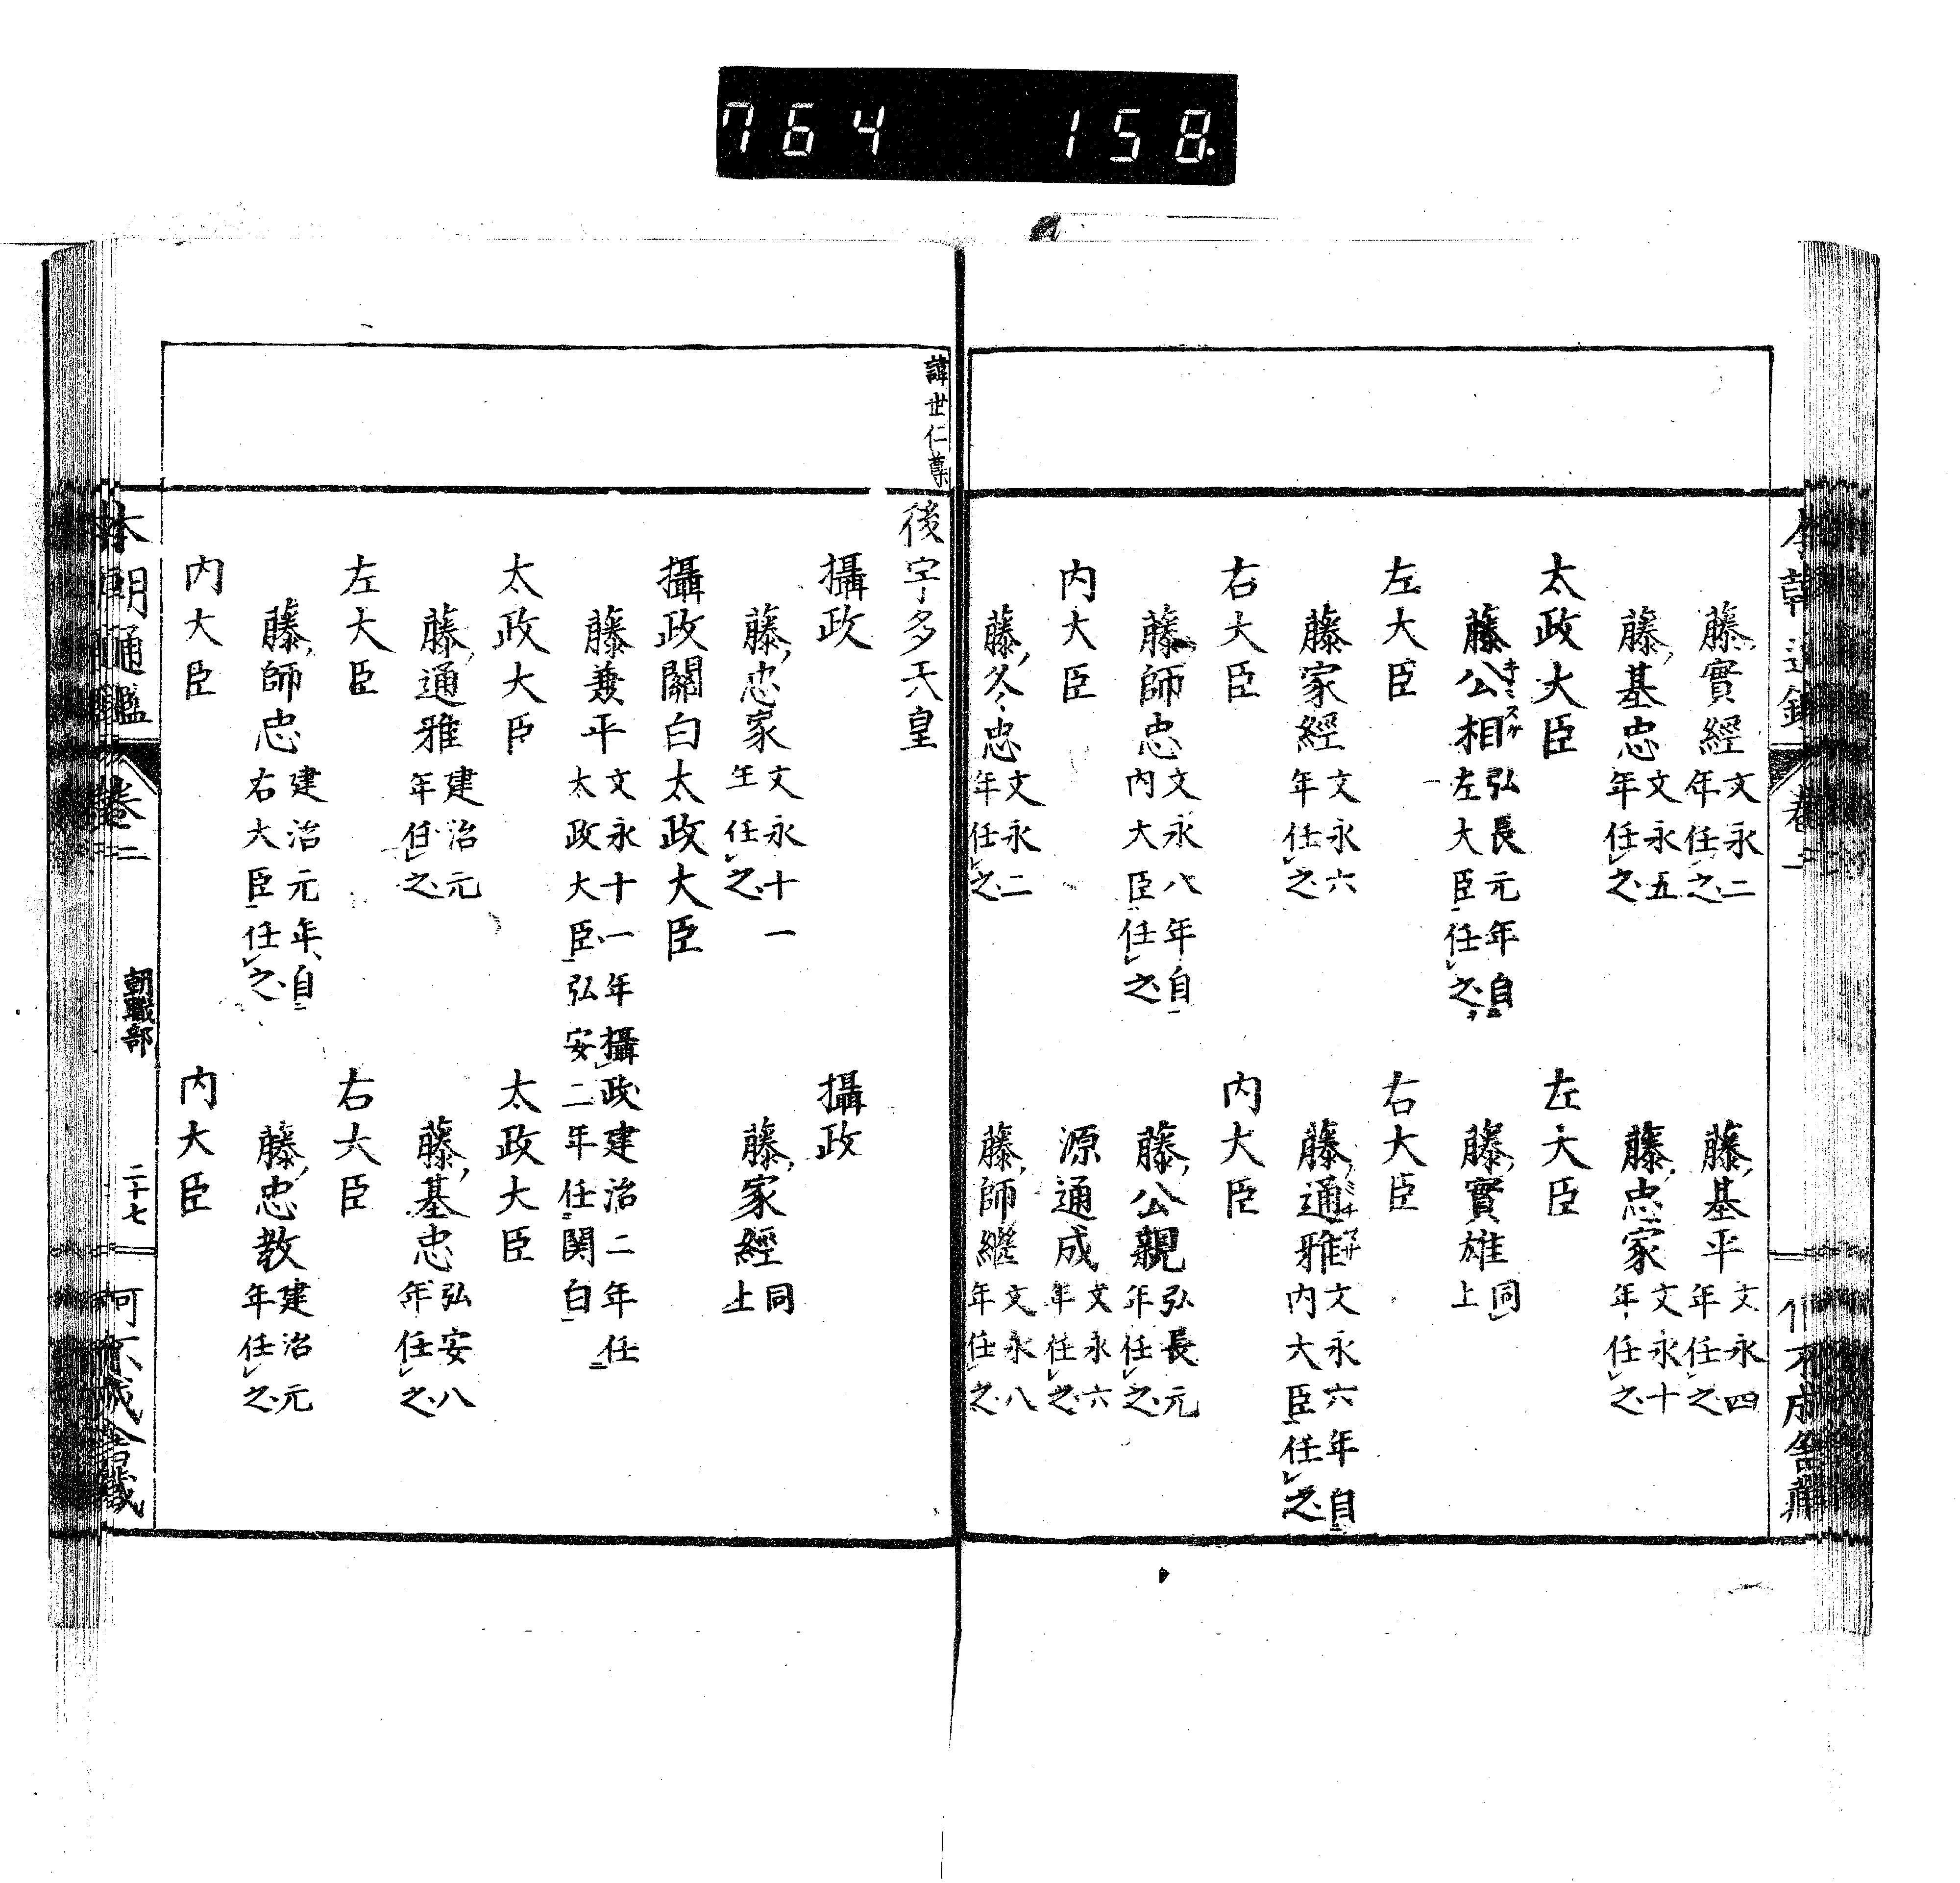 764 158.
藤實經 文永二年任之 藤基平 文永四年任之
藤基忠 文永五年任之 藤忠家 文永十年任之
太政大臣 左大臣
藤公相 弘長元年自左大臣任之 藤實雄 同上
左大臣 右大臣
藤家經 文永六年任之 藤通雅 文永六年自内大臣任之
右大臣 内大臣
藤師忠 文永八年自内大臣任之 藤公親 弘長元年任之
内大臣 源通成 文永六年任之
藤冬忠 文永二年任之 藤師繼 文永八年任之
諱世仁尊
後宇多天皇
攝政 攝政
藤忠家 文永十一年任之 藤家經 同上
攝政關白太政大臣
藤兼平 文永十一年攝政建治二年任太政大臣弘安二年任関白
太政大臣 太政大臣
藤通雅 建治元年任之 藤基忠 弘安八年任之
左大臣 右大臣
藤師忠 建治元年自右大臣任之 藤忠教 建治元年任之
内大臣 内大臣
本朝通鑑 卷二 朝職部 二十七